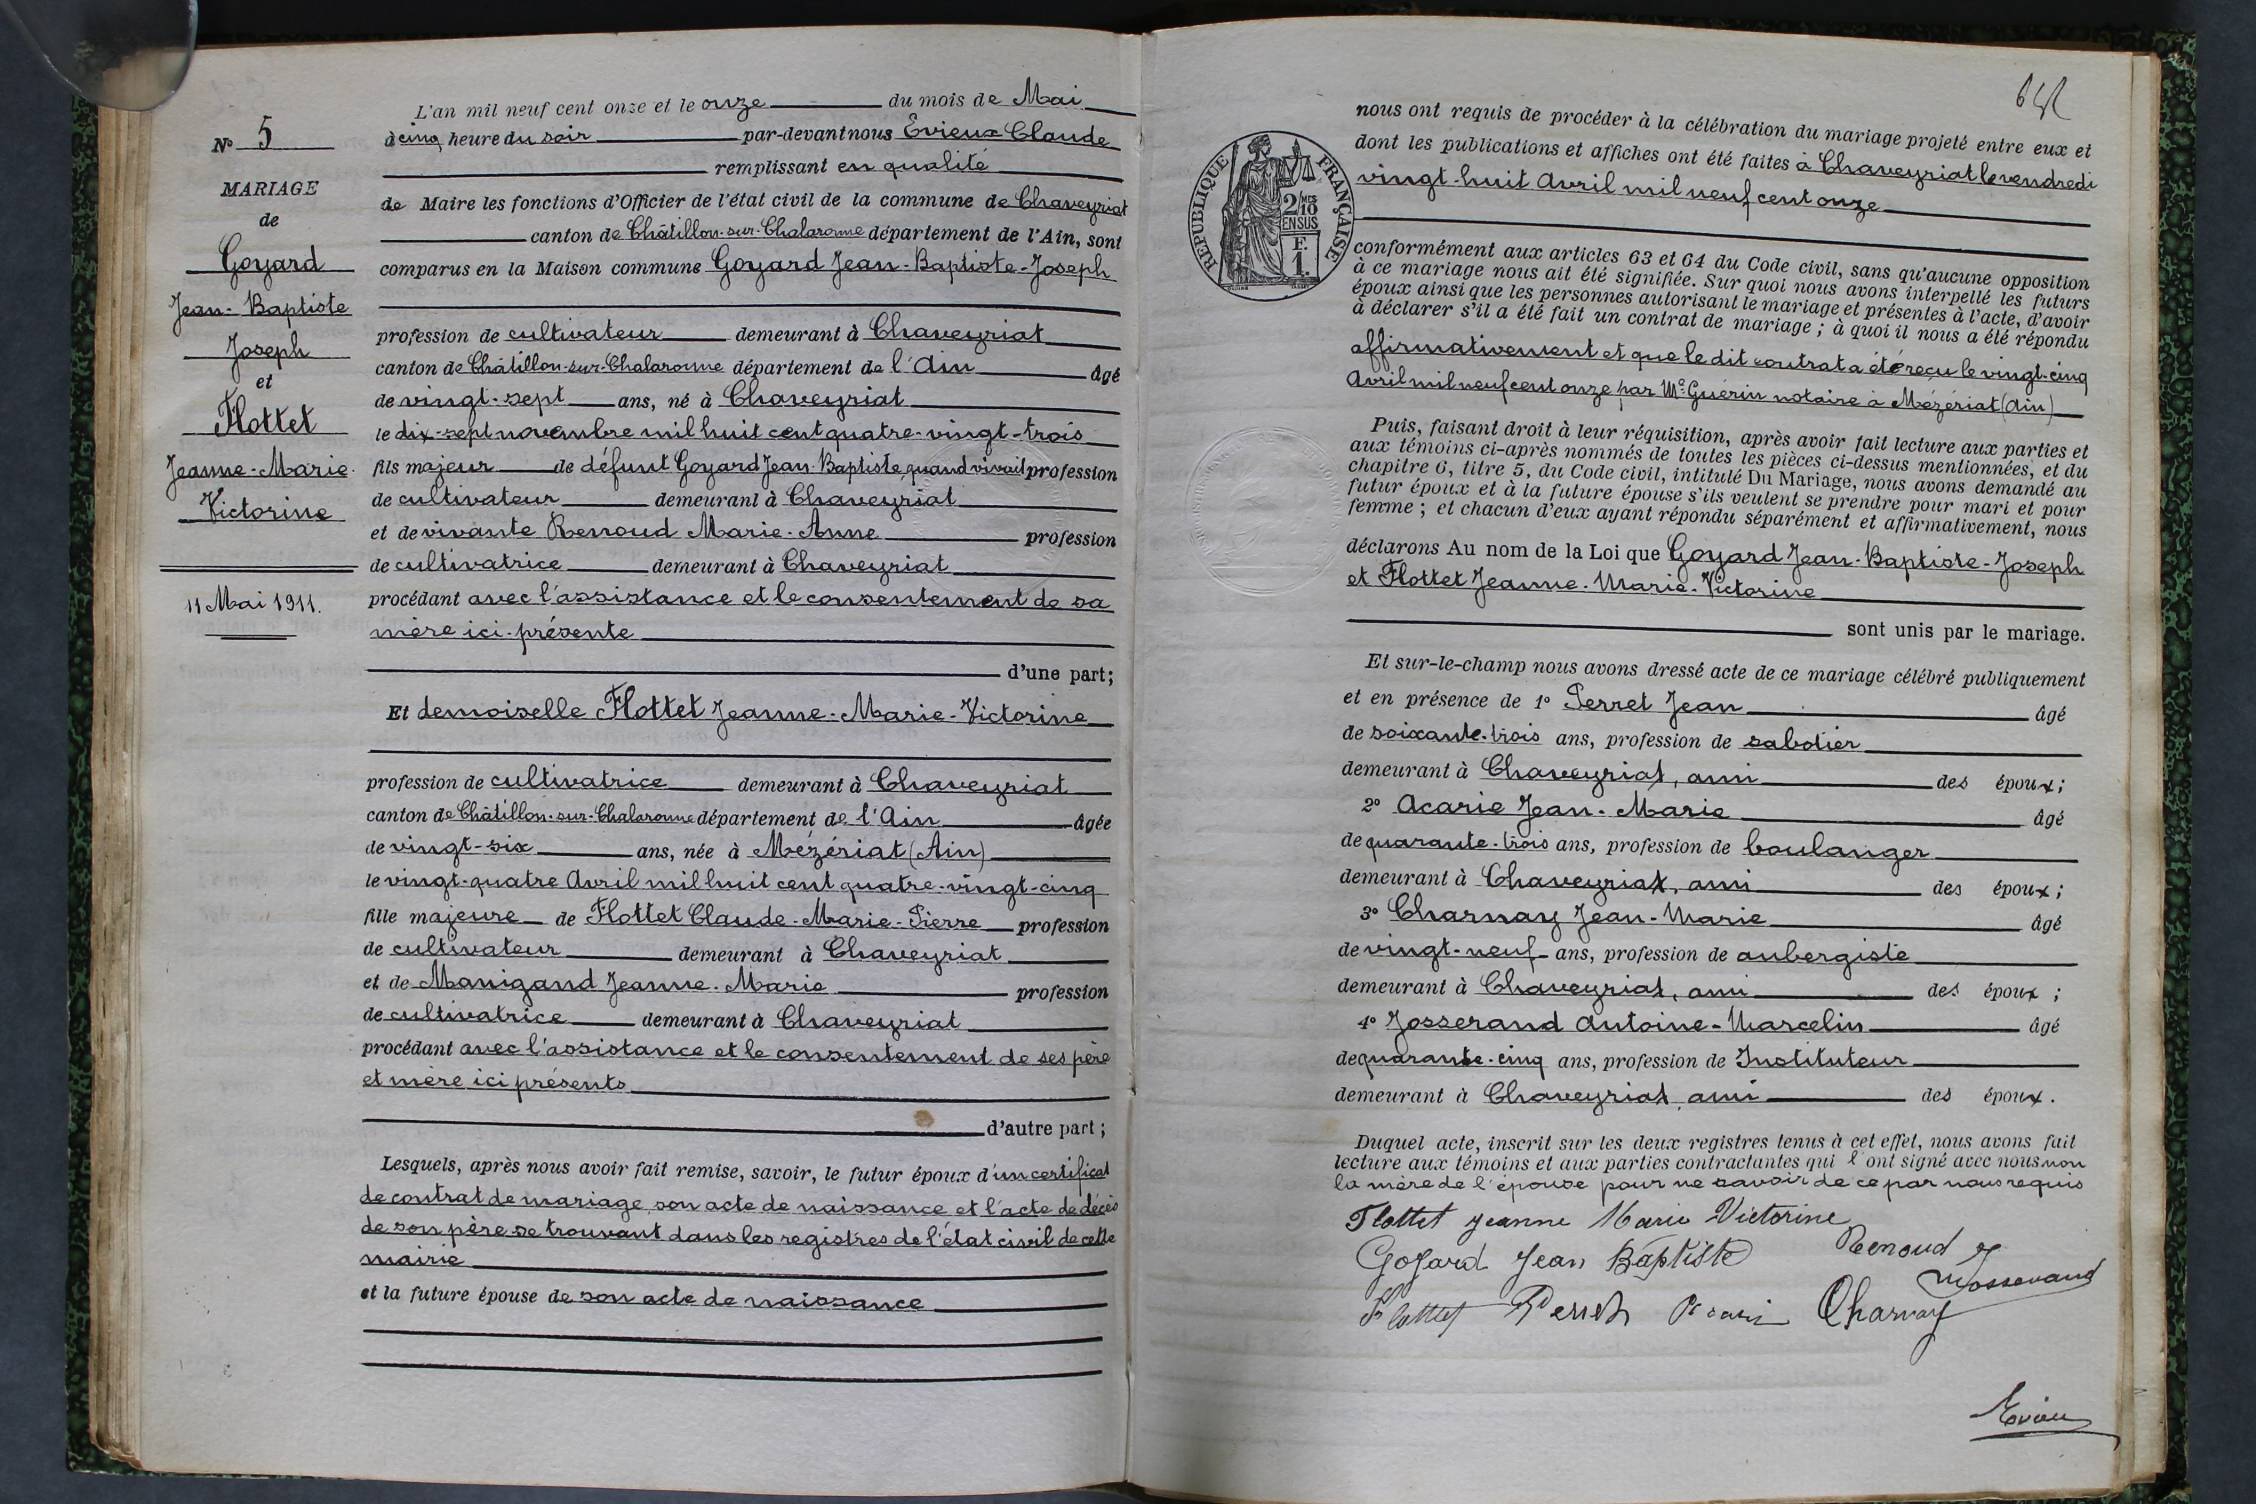 N° 5
MARIAGE
de
Goyard
Jean-Baptiste
Joseph
et
Flottet
Jeanne-Marie-
Victorine
11 Mai 1911.
L'an mil neuf cent onze et le onze du mois de Mai
à cinq heure du soir par-devant nous Evieux Claude
remplissant en qualité
de Maire les fonctions d'Officier de l'état civil de la commune de Chaveyriat
canton de Châtillon-sur-Chalaronne département de l'Ain, sont
comparus en la Maison commune Goyard Jean-Baptiste-Joseph
profession de cultivateur demeurant à Chaveyriat
canton de Châtillon-sur-Chalaronne département de l'Ain âgé
de vingt-sept ans, né à Chaveyriat
le dix-sept novembre mil huit cent quatre-vingt-trois
fils majeur de défunt Goyard Jean-Baptiste, quand vivait profession
de cultivateur demeurant à Chaveyriat
et de vivante Renoud Marie-Anne profession
de cultivatrice demeurant à Chaveyriat
procédant avec l'assistance et le consentement de sa
mère ici-présente
d'une part;
Et demoiselle Flottet Jeanne-Marie-Victorine
profession de cultivatrice demeurant à Chaveyriat
canton de Châtillon-sur-Chalaronne département de l'Ain âgée
de vingt-six ans, née à Mézériat (Ain)
le vingt-quatre Avril mil huit cent quatre-vingt-cinq
fille majeure de Flottet Claude-Marie-Pierre profession
de cultivateur demeurant à Chaveyriat
et de Manigand Jeanne-Marie profession
de cultivatrice demeurant à Chaveyriat
procédant avec l'assistance et le consentement de ses père
et mère ici présents
d'autre part;
Lesquels, après nous avoir fait remise, savoir, le futur époux d'un certificat
de contrat de mariage son acte de naissance et l'acte de décès
de son père se trouvant dans les registres de l'état civil de cette
mairie
et la future épouse de son acte de naissance
REPUBLIQUE FRANÇAISE
2/10 MES
EN SUS
F.
1.
nous ont requis de procéder à la célébration du mariage projeté entre eux et
dont les publications et affiches ont été faites à Chaveyriat le vendredi
vingt-huit Avril mil neuf cent onze
conformément aux articles 63 et 64 du Code civil, sans qu'aucune opposition
à ce mariage nous ait été signifiée. Sur quoi nous avons interpellé les futurs
époux ainsi que les personnes autorisant le mariage et présentes à l'acte, d'avoir
à déclarer s'il a été fait un contrat de mariage; à quoi il nous a été répondu
affirmativement et que le dit contrat a été reçu le vingt-cinq
Avril mil neuf cent onze par Me Guérin notaire à Mézériat (Ain)
Puis, faisant droit à leur réquisition, après avoir fait lecture aux parties et
aux témoins ci-après nommés de toutes les pièces ci-dessus mentionnées, et du
chapitre 6, titre 5, du Code civil, intitulé Du Mariage, nous avons demandé au
futur époux et à la future épouse s'ils veulent se prendre pour mari et pour
femme; et chacun d'eux ayant répondu séparément et affirmativement, nous
déclarons Au nom de la Loi que Goyard Jean-Baptiste-Joseph
et Flottet Jeanne-Marie-Victorine
sont unis par le mariage.
Et sur-le-champ nous avons dressé acte de ce mariage célébré publiquement
et en présence de 1° Perret Jean âgé
de soixante-trois ans, profession de sabotier
demeurant à Chaveyriat, ami des époux;
2° Acarie Jean-Marie âgé
de quarante-trois ans, profession de boulanger
demeurant à Chaveyriat, ami des époux;
3° Charnay Jean-Marie âgé
de vingt-neuf ans, profession de aubergiste
demeurant à Chaveyriat, ami des époux;
4° Josserand Antoine-Marcelin âgé
de quarante-cinq ans, profession de Instituteur
demeurant à Chaveyriat, ami des époux.
Duquel acte, inscrit sur les deux registres tenus à cet effet, nous avons fait
lecture aux témoins et aux parties contractantes qui l'ont signé avec nous non
la mère de l'épouse pour ne savoir de ce par nous requis
Flottet Jeanne Marie Victorine
Goyard Jean Baptiste Renoud
Josserand
Flottet Perret Acarie Charnay
Evieux